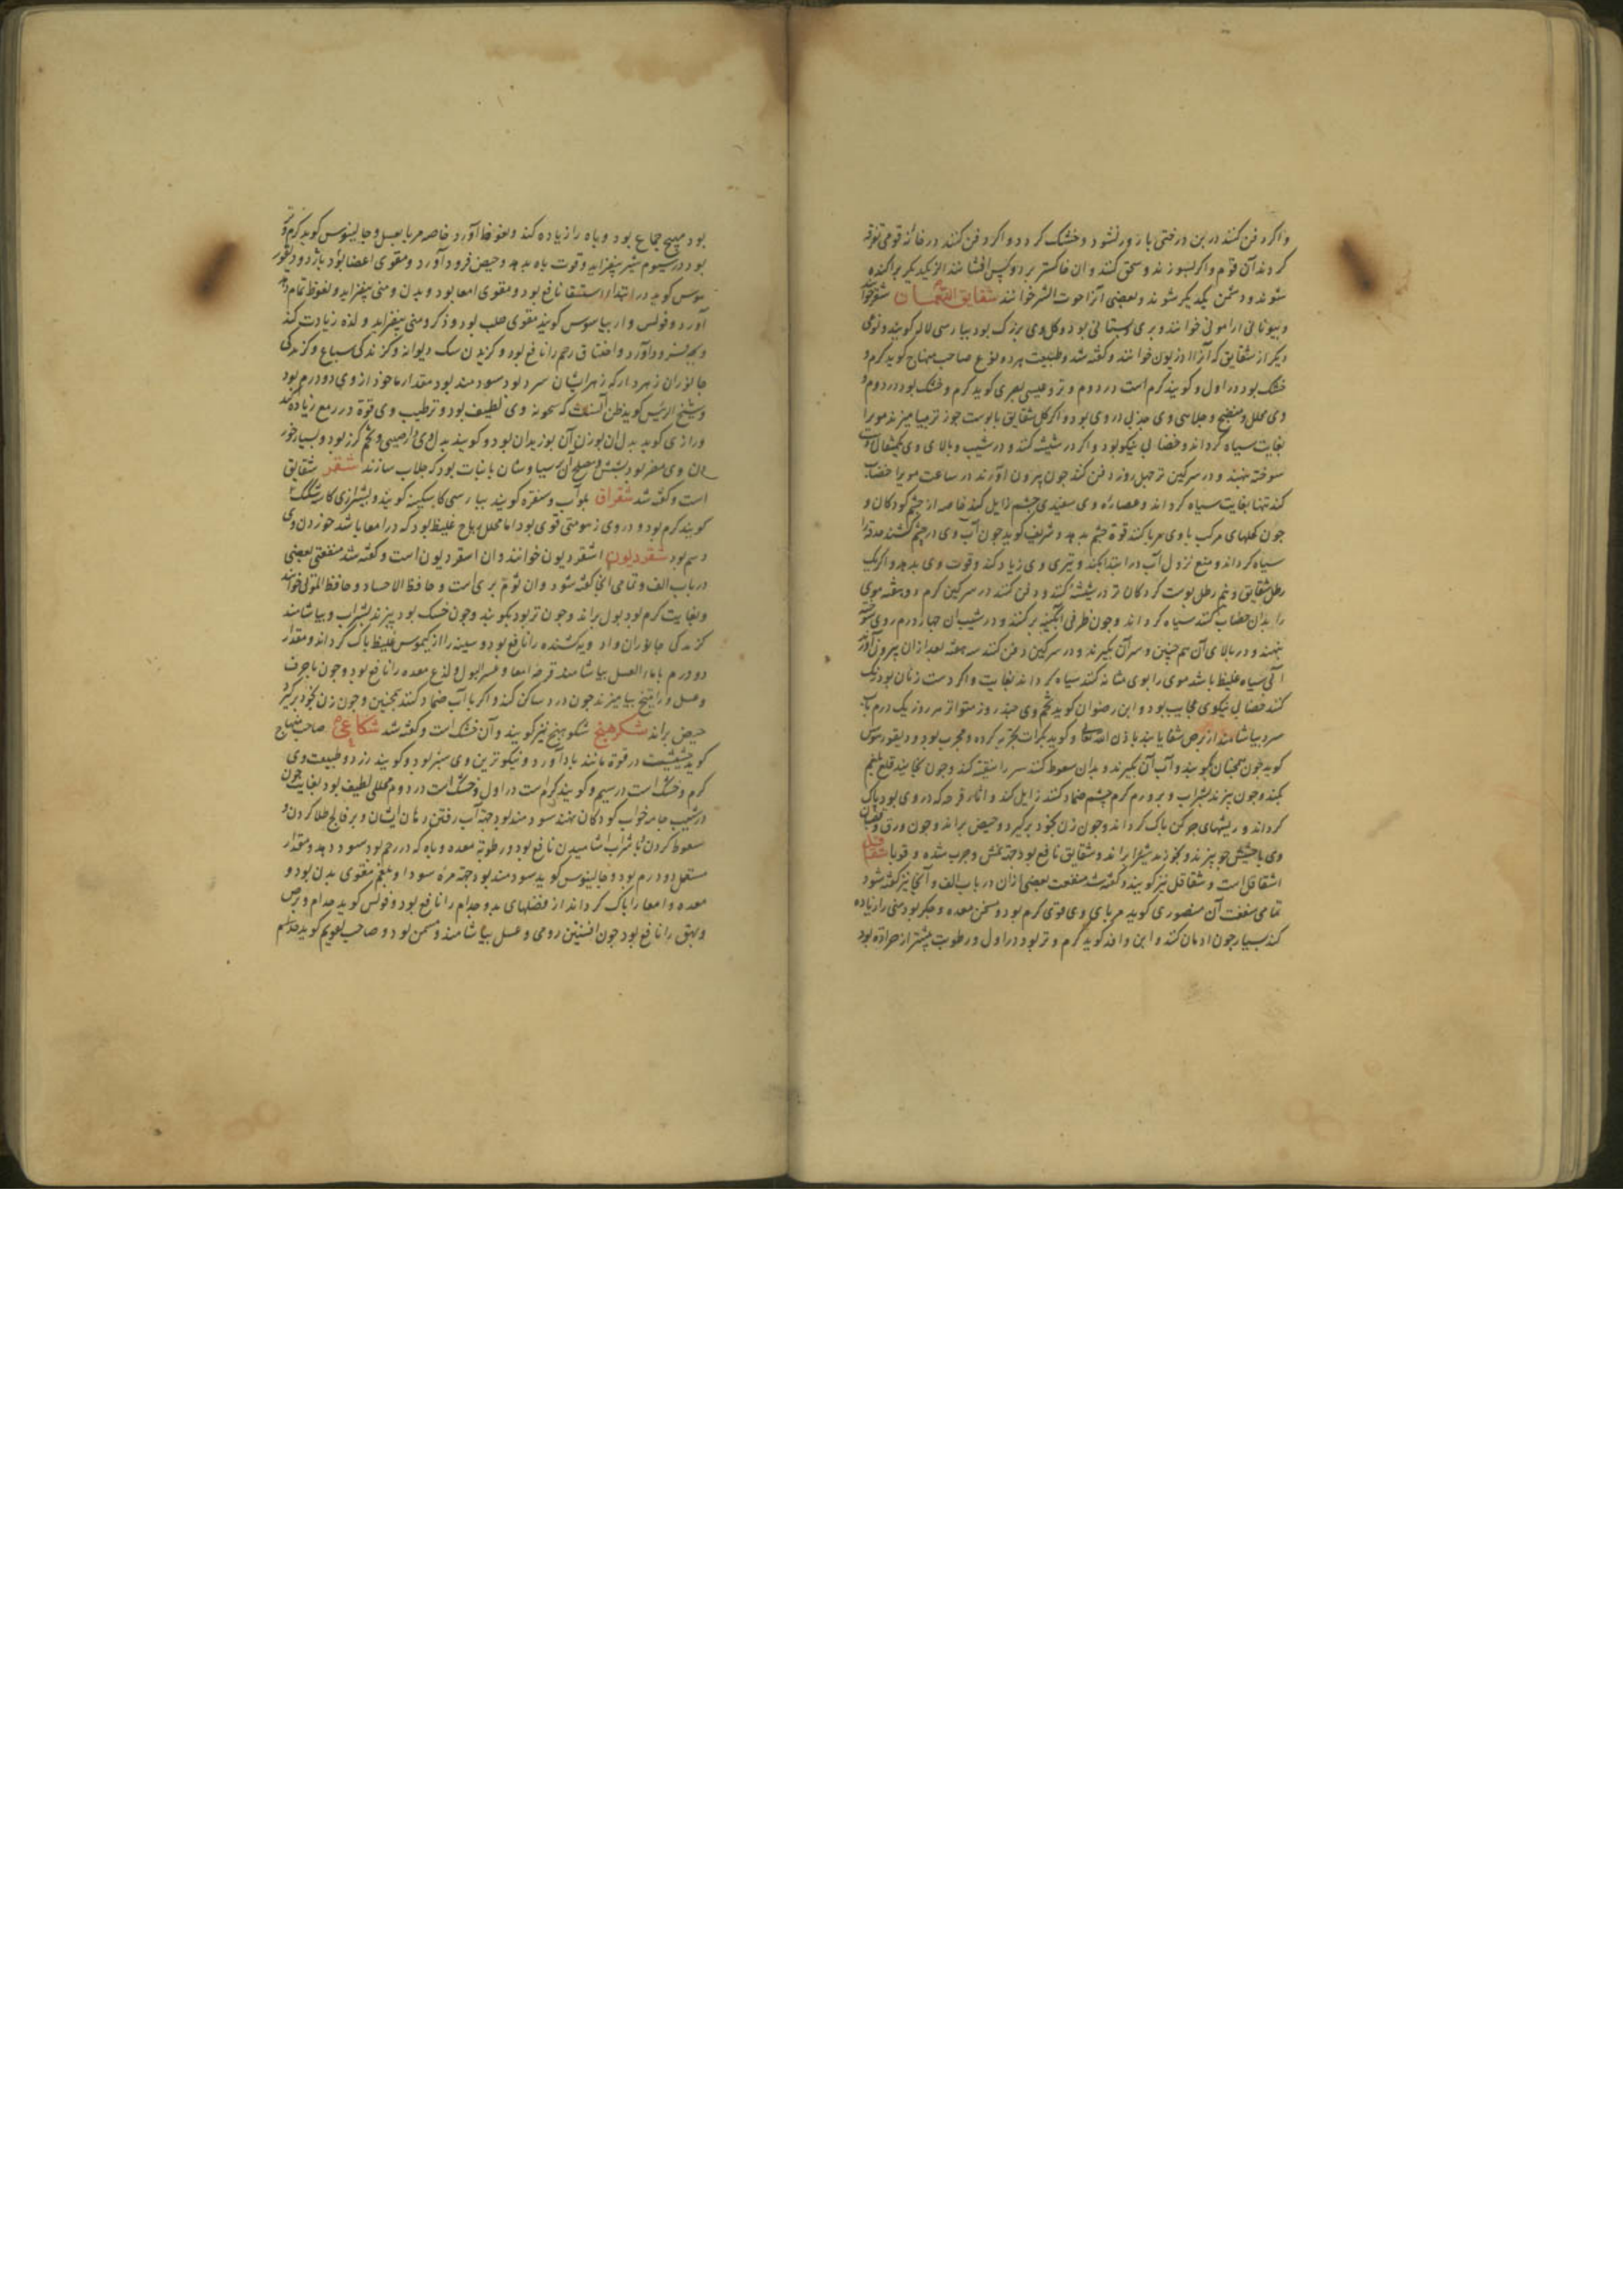 و اگر دفن کنند در بن درختی بارور نشود و خشک گردد و اگر دفن کنند در خانه قومی تفرقه
گردند آن قوم و اگر بسوزند و سحق کنند و ان خاکستر بر دو کس افشانند از یکدیگر پراکنده
شوند و دشمن یکدیگر شوند و بعضی آنرا حوت الشر خوانند شقایق النعمان شقر خوانند
و بیونانی ارامونی خوانند و بری و بستانی بود و گل وی بزرگ بود بپارسی لاله گویند و نوعی
دیگر از شقایق که آنرا اذریون خوانند و گفته شد و طبیعت هر دو نوع صاحب منهاج گوید گرم و
خشک بود در اول و گویند گرم است در دوم و تر و عیسی بصری گوید گرم و خشک بود در دوم و
وی محلل و منضج و جلایی وی و جذبی در وی بود و اگر گل شقایق با پوست جوز تر بیامیزند مو را
بغایت سیاه گرداند و خضابی نیکو بود و اگر در شیشه کنند و در شیب و بالای وی یکمثقال
سوخته بنهند و در سرگین تر چهل روز دفن کنند چون بیرون آورند در ساعت مو را خضاب
کند تنها بغایت سیاه گرداند و عصاره وی سفیدی چشم زایل کند خاصه از چشم کودکان و
چون کحلهای مرکب با وی مربا کنند قوة چشم بدهد و شریف گوید چون آب وی در چشم کشند حدقه را
سیاه گرداند و منع نزول آب در ابتدا بکند و تیزی وی زیاد کند و قوت وی بدهد و اگر یک
رطل شقایق و نیم رطل پوست گردکان تر در شیشه کنند و دفن کنند در سرگین گرم دو هفته موی
را بدان خضاب کنند سیاه گرداند و چون ظرفی آبگینه بر کنند و در شیب آن چهار درم روی سوخته
بنهند و در بالای آن هم چنین و سر آن بگیرند و در سرگین دفن کنند سه هفته بعد از ان بیرون آورند
آبی سیاه غلیظ باشد موی را بوی شانه کنند سیاه گرداند بغایت و اگر دست زنان بود رنگ
کنند خضابی نیکوی عجایب بود و ابن رضوان گوید تخم وی چند روز متواتر هر روز یک درم بآب
سرد بیاشامند از برص شفا یابند باذن الله تعالی و گوید بکرات تجربه کرده و مجرب بود و دیسقوریدوس
گوید چون بیخ آن بکوبند و آب آن بگیرند و بدان سعوط کنند سر را تنقیه کند و چون بخایند قلع بلغم
بکند و چون بپزند بشراب و بر ورم گرم چشم ضماد کنند زایل کند و اثار قرحه که در وی بود پاک
گرداند و ریشهای چرکن پاک گرداند و چون زن بخود برگیرد و حیض براند و چون ورق و قضبان
وی با حشیش جو بپزند و بخورند شیر براند و شقایق نافع بود جهة نمش و جرب شده و قوبا شقاقل
اشقاقل است و شقاقل نیز گویند و گفته شد منفعت بعضی ازان در باب الف و آنجا نیز گفته شود
تمامی منفعت آن منصوری گوید مربای وی قوی گرم بود و مسخن معده و جگر بود و منی را زیاده
کند بسیار چون ادمان کنند و ابن وافد گوید گرم و تر بود در اول و رطوبت بیشتر از حرارة بود
بود مهیج جماع بود و باه را زیاده کند و نعوظ آورد خاصه مربا بعسل و جالینوس گوید گرم و تر
بود در سیوم شیر بیفزاید و قوت باه بدهد و حیض فرود آورد و مقوی اعضا بود
گوید در ابتداء استسقا نافع بود و مقوی امعا بود و بدن و منی بیفزاید و نعوظ تمام
آورد و فولس و اریباسوس گویند مقوی صلب بود و ذکر و منی بیفزاید و لذه زیادت کند
و بچه بیندازد و اختناق رحم را نافع بود و گزیدن سگ دیوانه و گزندگی سباع و گزندگی
جانوران زهردار که زهر ایشان سرد بود سودمند بود مقدار ماخوذ از وی دو درم بود
و شیخ الرئیس گوید ظن آنست که سخونه وی لطیف بود و ترطیب وی قوة در ربع زیاده کند
و رازی گوید بدل ان بوزن آن بوزیدان بود و گویند بدل وی دارچینی و تخم گزر بود و بسیار خوردن
ان وی مضر بود بشش و مصلح آن پرسیاوشان با نبات بود که جلاب سازند شقر شقایق
است و گفته شد شقراق
گویند گرم بود و در وی زهومتی قوی بود اما محلل ریاح غلیظ بود که در امعا باشد خوردن وی
شقردیون اشقردیون خوانند و ان اسقردیون است و گفته شد منفعتی بعضی
در باب الف و تمامی اینجا گفته شود و ان ثوم بری است و حافظ الاجساد و حافظ الموتی خوانند
و بغایت گرم بود بول براند و چون تر بود بکوبند و چون خشک بود بپزند بشراب و بیاشامند
گزندگی جانوران و ادویه کشنده را نافع بود و سینه را از کیموس غلیظ پاک گرداند و مقدار
دو درم با ماء العسل بیاشامند قرحه امعا و عسر البول و لذع معده را نافع بود و چون با حرف
و عسل و راتینج بیامیزند چون درد ساکن کند و اگر با آب ضماد کنند همچنین و چون زن بخود برگیرد
حیض براند شکرهنج شکوهنج نیز گویند و آن خشک است و گفته شد شکاعی صاحب منهاج
گوید حشیشیست در قوة مانند باداورد و نیکوترین وی سبز بود و گویند زرد و طبیعت وی
گرم و خشک است در سیم و گویند گرم است در اول و خشک است در دوم محللی لطیف بود بغایت چون
در شیب جامه خواب کودکان نهند سودمند بود جهة آب رفتن دهان ایشان و بر فالج طلا کردن و
سعوط کردن با شراب اشامیدن نافع بود و رطوبة معده و باه که در رحم بود سود دهد و مقدار
مستعمل دو درم بود و جالینوس گوید سودمند بود جهة مره سودا و بلغم مقوی بدن بود و
معده و امعا را پاک گرداند از فضلهای بد و جدام را نافع بود و فولس گوید جدام و برص
و بهق را نافع بود چون افسنتین رومی و عسل بیاشامند و مسمن بود و صاحب تقویم گوید